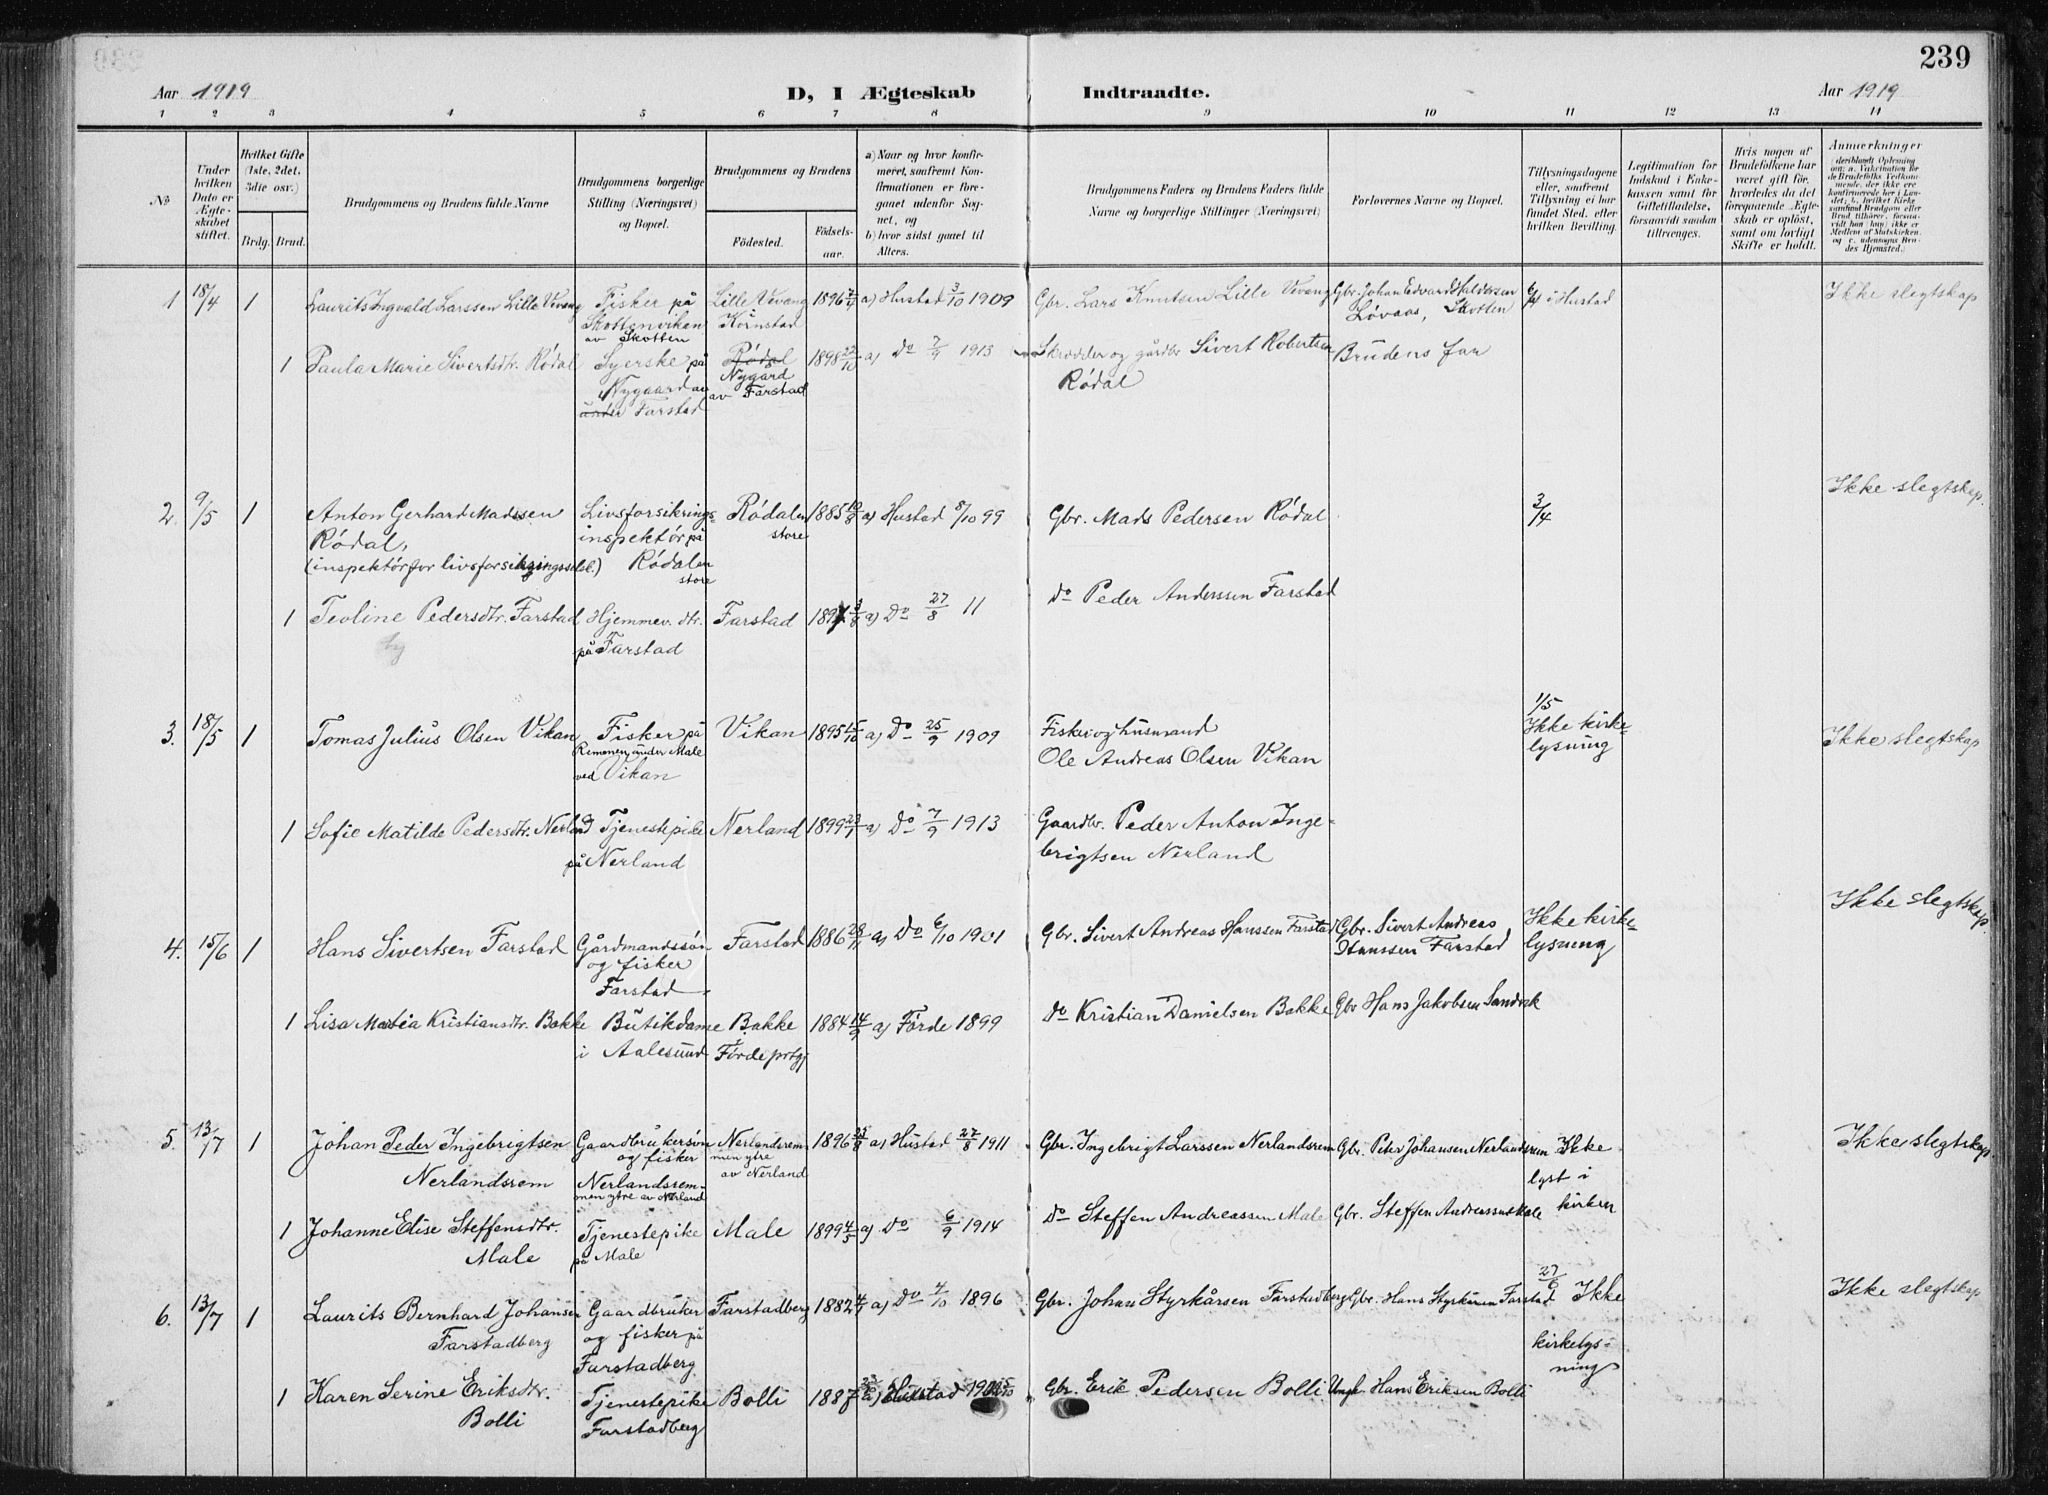 239
Aar 1919
D, I Ægteskab Indtraadte.
Aar 1919
1 2 3 4 5 6 7 8 9 10 11 12 13 14
No
Under hvilken Dato er Ægteskabet stiftet.
Hvilket Gifte (1ste, 2det, 3die osv.)
Brdg. Brud.
Brudgommens og Brudens fulde Navne
Brudgommens borgerlige Stilling (Næringsvei) og Bopæl.
Brudgommens og Brudens
Fødested.
Fødselsaar.
a) Naar og hvor konfirmeret, saafremt Konfirmationen er foregaaet udenfor Sognet, og
b) hvor sidst gaaet til Alters.
Brudgommens Faders og Brudens Faders fulde Navne og borgerlige Stillinger (Næringsvei)
Forlovernes Navne og Bopæl.
Tillysningsdagene eller, saafremt Tillysning ei har fundet Sted, efter hvilken Bevilling.
Legitimation for Indskud i Enkekassen samt for Giftetilladelse, forsaavidt saadan tiltrænges.
Hvis nogen af Brudefolkene har været gift før, hvorledes da det foregaaende Ægteskab er opløst, samt om lovligt Skifte er holdt.
Anmærkninger
(deriblandt Oplysning om: a. Vaksination for de Brudefolks Vedkommende, der ikke ere konfirmerede her i Landet; b. hvilket Kirkesamfund Brudgom eller Brud tilhører, forsaavidt han (hun) ikke er Medlem af Statskirken, og c. udensogns Brudes Hjemsted.)
1 18/4 1 Laurits Ingvald Larssen Lille Vevang
Fisker på Skottenviken av Skotten
Lille Vevang Kornstad
1896 a) Hustad 3/10 1909
Gbr. Lars Knutsen Lille Vevang
Gbr. Johan Edvard Hildersen Løvaas, Skotten
6/4 i Hustad
Ikke slegtskap
1 Paula Marie Sivertsdtr. Ródal
Syerske på Nygaard av under Farstad
Ródal Nygård av Farstad
1898 22/10 a) Do 7/9 1913
Skrædder og gårdbr Sivert Robertsen Ródal
Brudens far
2. 9/5 1 Anton Gerhard Madssen Ródal, (inspektór for livsforsikringsselsk.)
Livsforsikringsinspektór på Ródalen store
Ródalen store
1885 19/8 a) Hustad 8/10 99
Gbr. Mads Pedersen Ródal
3/4
Ikke slegtskap.
1 Teoline Pedersdtr. Farstad
Hjemmev. dtr. på Farstad
Farstad
189 3/8 a) Do 27/8 11
Do Peder Anderssen Farstad
3. 18/5 1 Tomas Julius Olsen Vikan
Fisker på Remenen under Male ved Vikan
Vikan
1895 15/10 a) Do 25/9 1909
Fisker og husmand Ole Andreas Olsen Vikan
1/5 Ikke kirkelysning
Ikke slegtskap
1 Sofie Matilde Pedersdtr. Nerland
Tjenestepike på Nerland
Nerland
1899 23/1 a) Do 7/9 1913
Gaardbr. Peder Anton Ingebrigtsen Nerland
4. 15/6 1 Hans Sivertsen Farstad
Gårdmandssón og fisker Farstad
Farstad
1886 28/1 a) Do 6/10 1901
Gbr. Sivert Andreas Hanssen Farstad
Gbr. Sivert Andreas Hanssen Farstad
Ikke kirkelysning
Ikke slegtskap.
1 Lisa Matéa Kristiansdtr. Bakke
Butikdame i Aalesund
Bakke Fórde prtgj
1884 14/9 a) Fórde 1899
Do Kristian Danielsen Bakke
Gbr Hans Jakobsen Sandvik
5. 13/7 1 Johan Peder Ingebrigtsen Nerlandsrem
Gaardbrukersón og fisker Nerlandsremmen ytre av Nerland
Nerlandsremmen ytre av Nerland
1896 23/8 a) Hustad 27/8 1911
Gbr. Ingebrigt Larssen Nerlandsrem
Gbr. Peter Johansen Nerlandsrem
Ikke lyst i kirken
Ikke slegtskap
1 Johanne Elise Steffensdtr. Male
Tjenestepike på Male
Male
1899 4/5 a) Do 6/9 1914
Do Steffen Andreassen Male
Gbr. Steffen Andreassen Male
6. 13/7 1 Laurits Bernhard Johansen Farstadberg
Gaardbruker og fisker på Farstadberg
Farstadberg
1882 4/1 a) Do 4/10 1896
Gbr. Johan Styrkårsen Farstadberg
Gbr. Hans Styrkårsen Farstad
27/6 Ikke kirkelysning
Ikke slegtskap
1 Karen Serine Eriksdtr. Bolli
Tjenestepike Farstadberg
Bolli
1887 a) Hustad
Gbr. Erik Pedersen Bolli
Ungk. Hans Eriksen Bolli